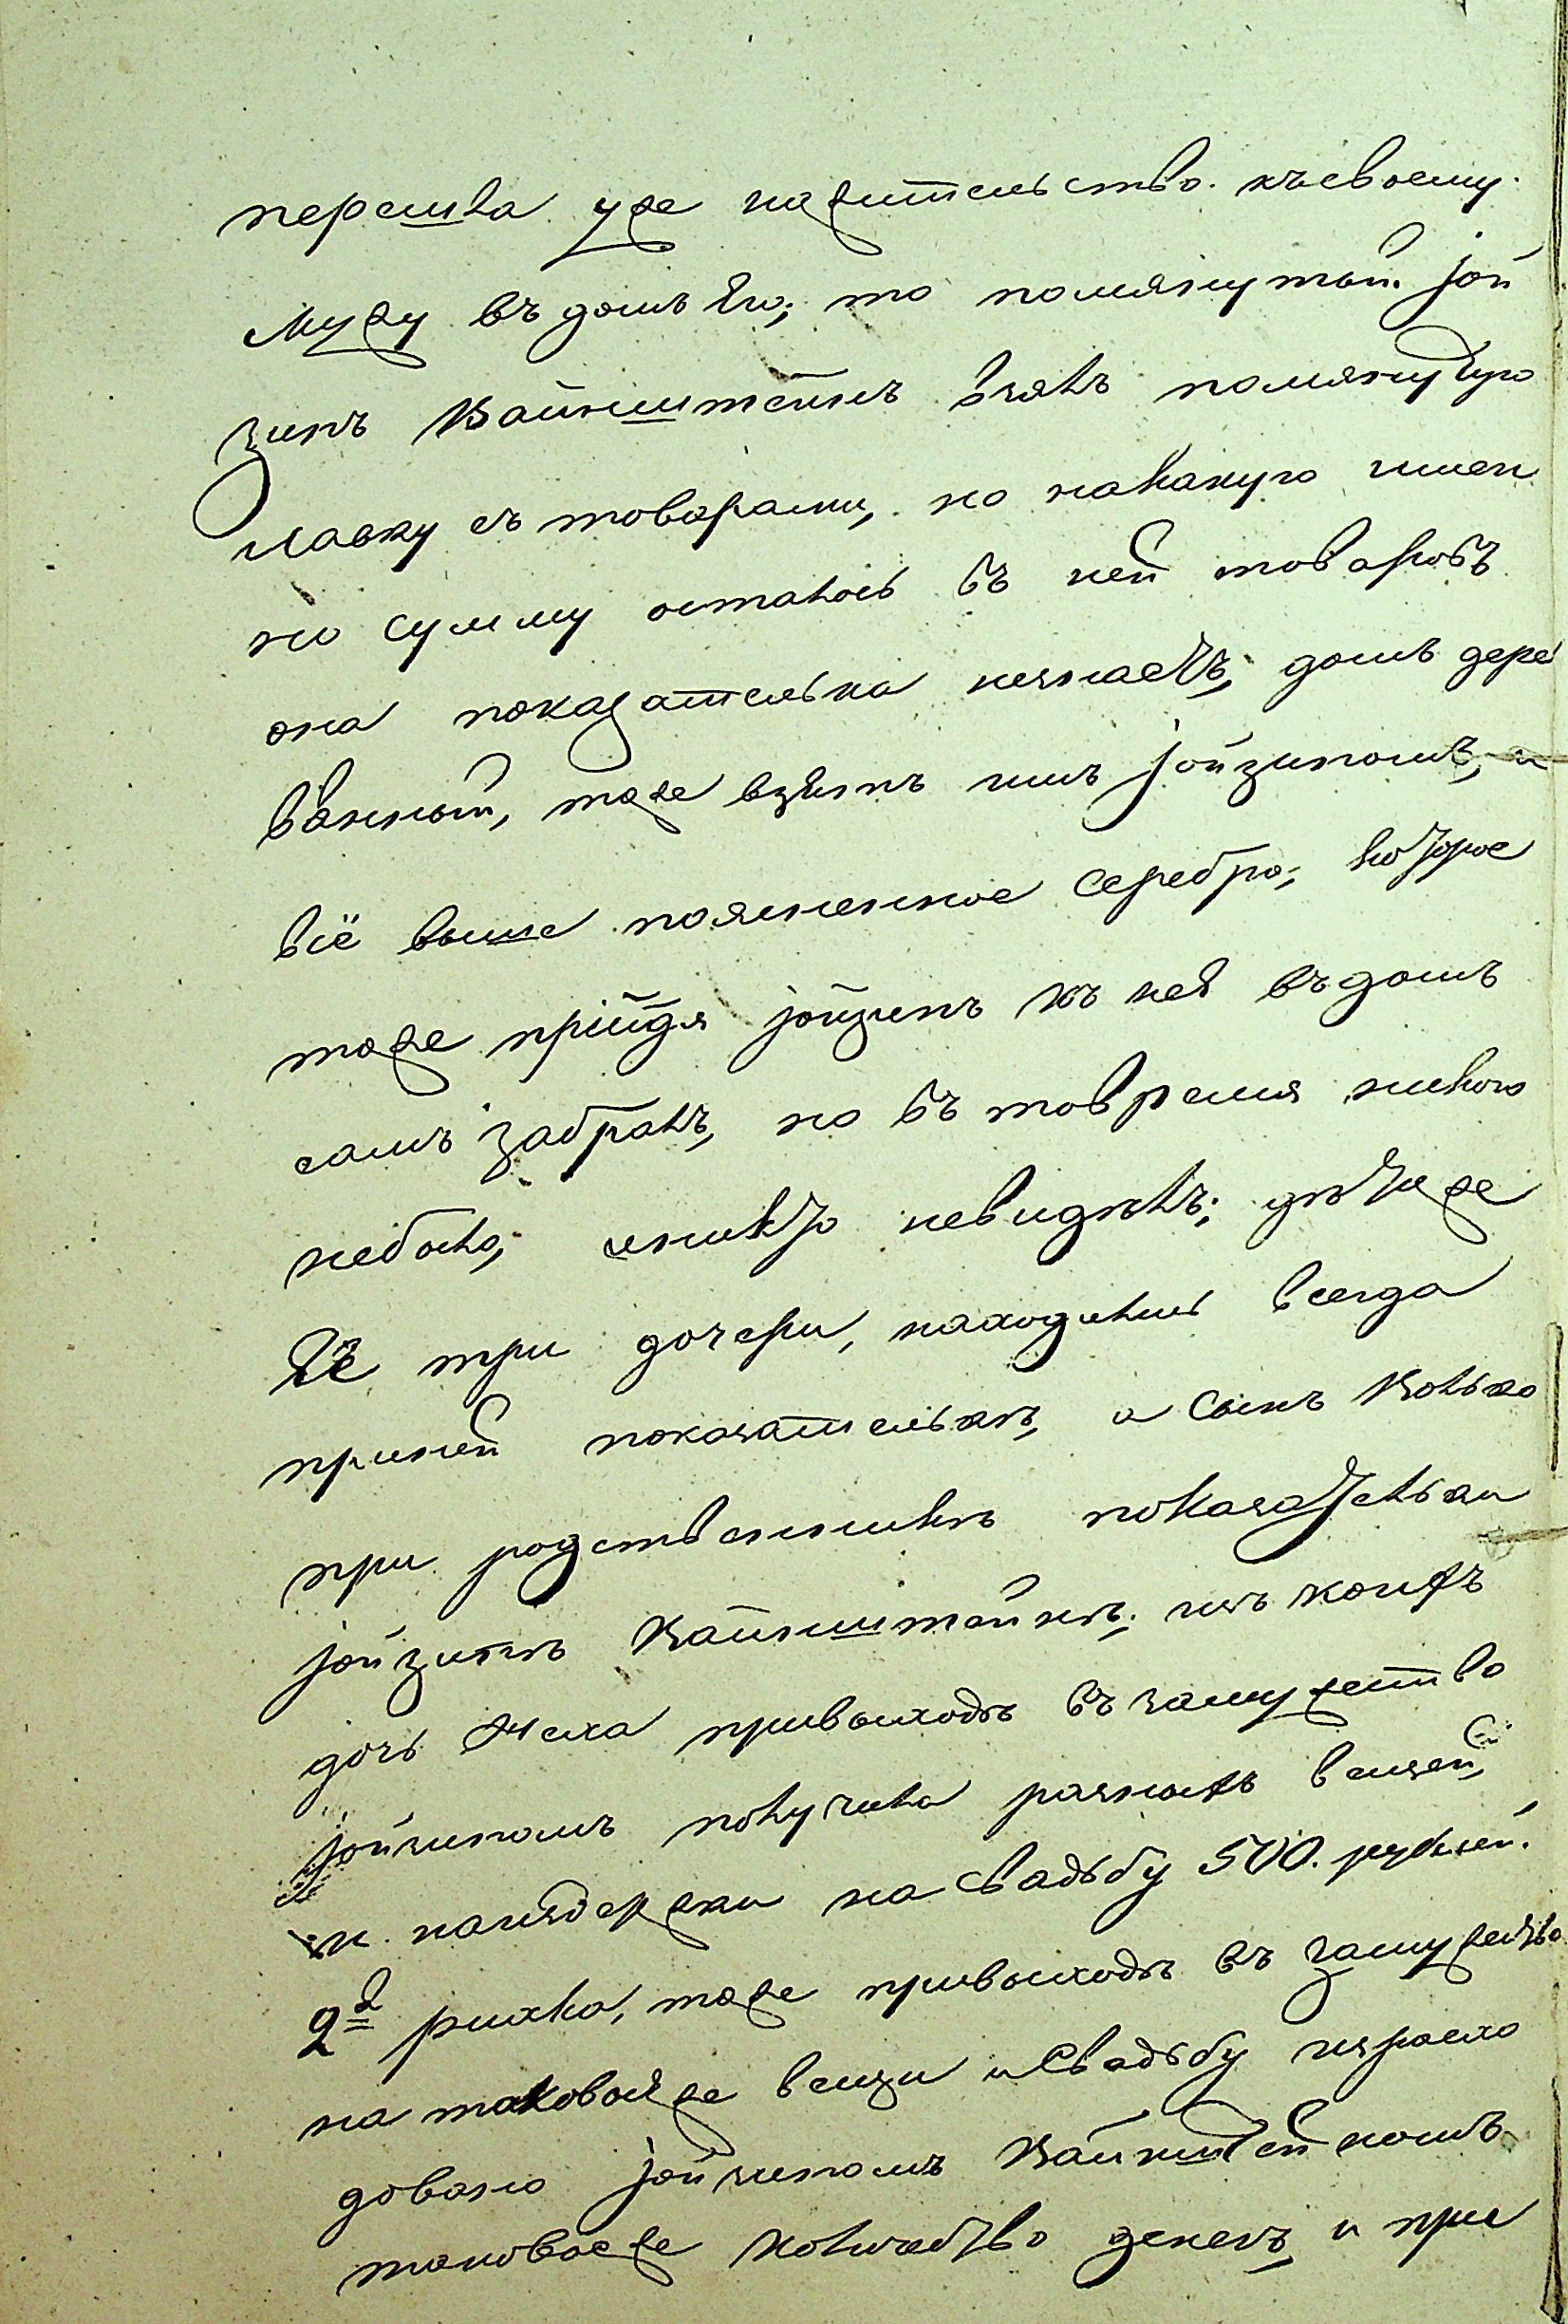 перешла уже нажительство къ своему
мужу въ домъ Его; то помянутый Іой
зипъ Вайнштейнъ взялъ помянутую
лавку съ товарами, но накакую имен
но сумму осталось въ ней товаровъ
она показательница незнаетъ; домъ дере
вянный, тоже взятъ имъ Іойзипомъ, и
всё выше поясненное серебро; которое
тоже прійдя Іойзипъ къ ней въ домъ
самъ забралъ, но въ то время никого
небыло, иникто невидѣлъ; дѣтиже
Её три дочери, находились всегда
приней показательницѣ, а сынъ Волько
при родственникѣ показательницы
Іойзипѣ Вайнштейнѣ; изъ коихъ
дочь Неха привыходѣ въ замужество
Іойзипомъ получила разныхъ вещей,
и наиздержки на свадьбу 500. рублей.
2я рихла, тоже привыходѣ въ замужество
на таковыяже вещи и свадьбу израсхо
довано Іойзипомъ Вайнштейномъ
таковоеже количество денегъ, и при